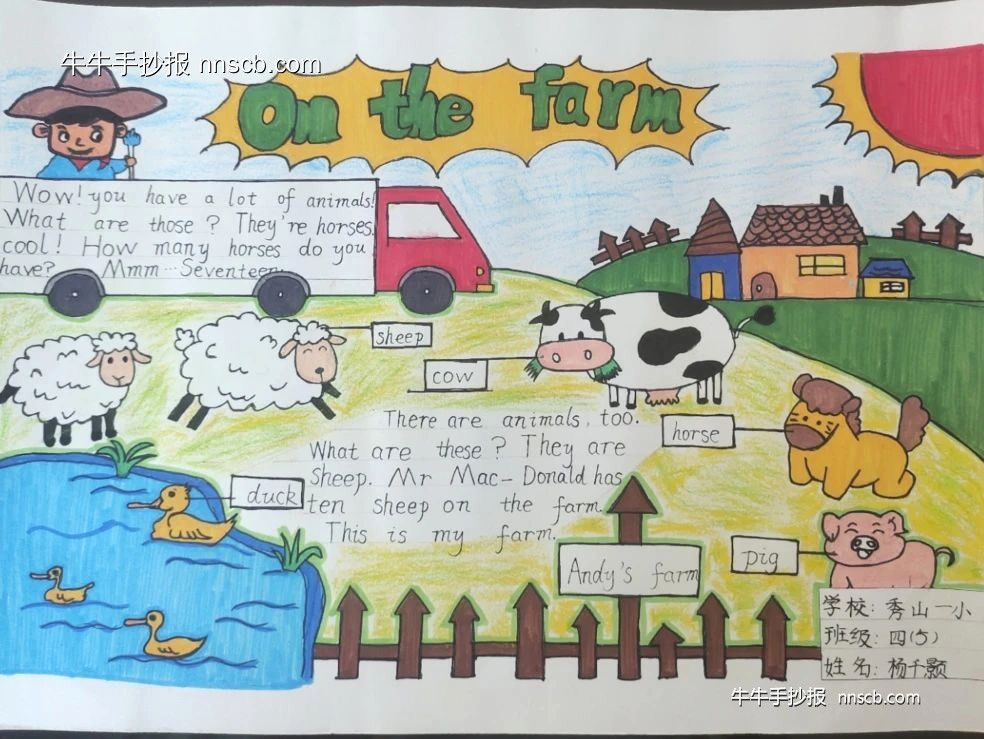 牛牛手抄报 nnscb.com
On the farm
Wow! you have a lot of animals!
What are those? They're horses.
cool! How many horses do you
have? Mmm…Seventeen.
sheep
cow
There are animals, too.
What are these? They are
sheep. Mr Mac-Donald has
ten sheep on the farm.
This is my farm.
horse
duck
pig
Andy's farm
学校: 秀山一小
班级: 四(5)
姓名: 杨千颢
牛牛手抄报 nnscb.com